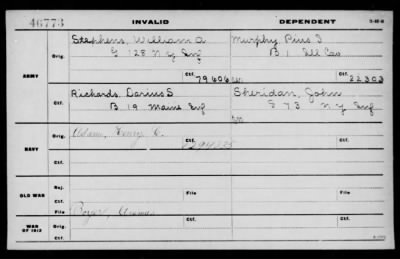 46773 INVALID DEPENDENT
Stephens, William A Murphy, Pius J
Orig. G 128 N Y Inf B 1 Ill Cav
ARMY Ctf. 79606 Ctf. 22303
Richards, Darius S. Sheridan, John
Ctf. B 19 Maine Inf G 73 N Y Inf
Orig. Adams, Henry C. Orig.
NAVY
Ctf. Ctf.
Rej. Ctf.
OLD WAR File File
Ctf.
File
WAR OF 1812 Orig. Ctf.
Ctf.